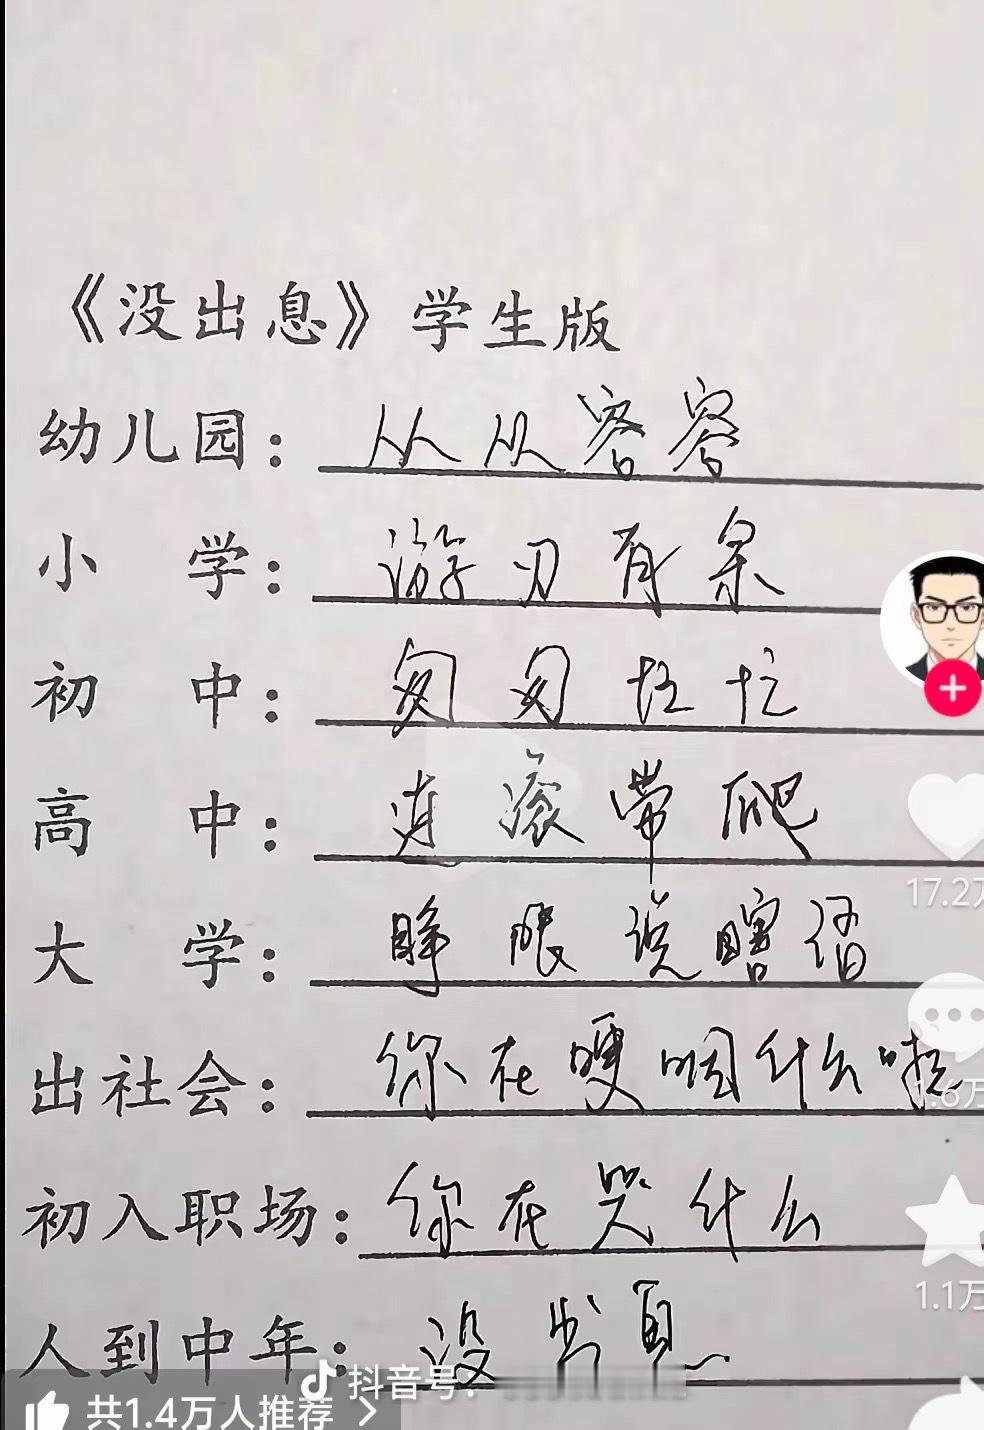 《没出息》学生版
幼儿园：从从容容
小学：游刃有余
初中：匆匆忙忙
高中：连滚带爬
大学：睁眼说瞎话
出社会：你在哽咽什么啦
初入职场：你在哭什么
人到中年：没出息
17.2万
1.6万
1.1万
抖音号：
共1.4万人推荐 >